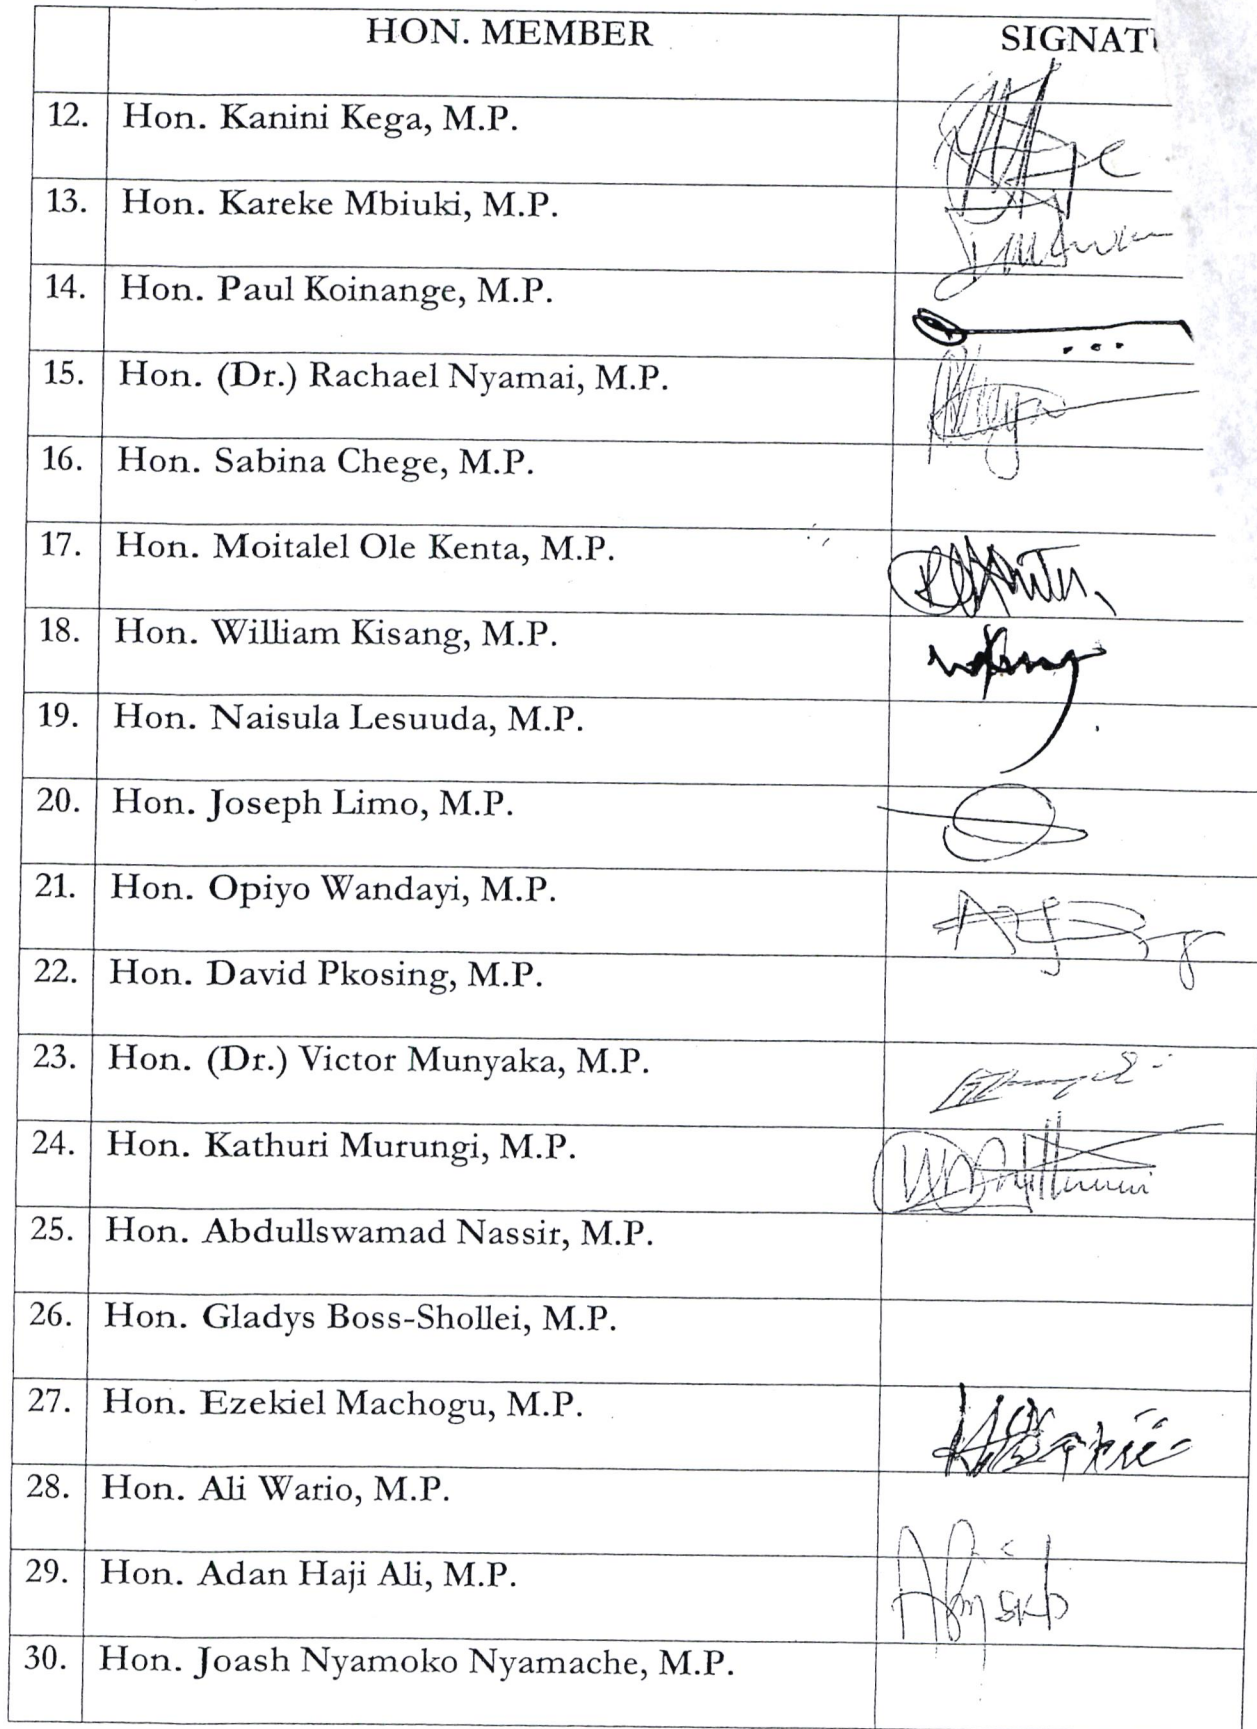 HON. MEMBER SIGNAT
12. Hon. Kanini Kega, M.P.
13. Hon. Kareke Mbiuki, M.P.
14. Hon. Paul Koinange, M.P.
15. Hon. (Dr.) Rachael Nyamai, M.P.
16. Hon. Sabina Chege, M.P.
17. Hon. Moitalel Ole Kenta, M.P.
18. Hon. William Kisang, M.P.
19. Hon. Naisula Lesuuda, M.P.
20. Hon. Joseph Limo, M.P.
21. Hon. Opiyo Wandayi, M.P.
22. Hon. David Pkosing, M.P.
23. Hon. (Dr.) Victor Munyaka, M.P.
24. Hon. Kathuri Murungi, M.P.
25. Hon. Abdullswamad Nassir, M.P.
26. Hon. Gladys Boss-Shollei, M.P.
27. Hon. Ezekiel Machogu, M.P.
28. Hon. Ali Wario, M.P.
29. Hon. Adan Haji Ali, M.P.
30. Hon. Joash Nyamoko Nyamache, M.P.